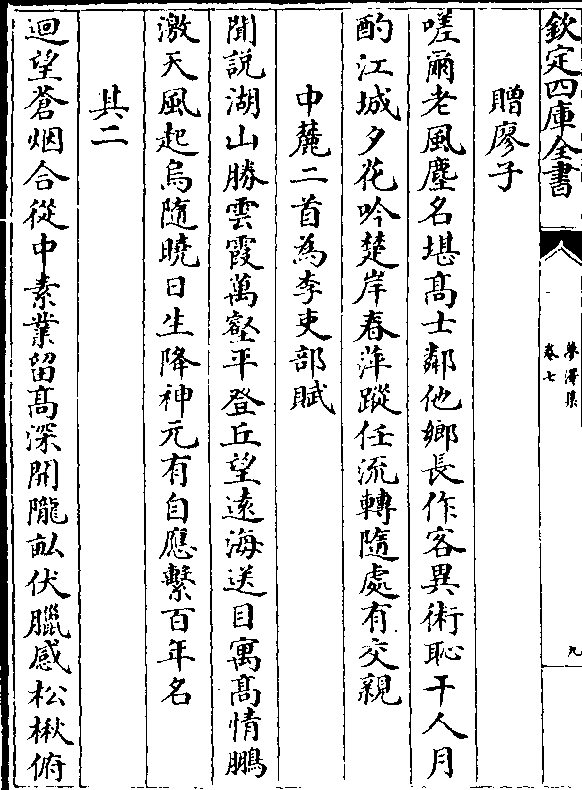 欽定四庫全書
夢澤集
卷七
九
贈廖子
嗟爾老風塵名堪髙士鄰他鄉長作客異術恥干人月
酌江城夕花吟楚岸春萍蹤任流轉隨處有交親
中麓二首為李吏部賦
聞説湖山勝雲霞萬壑平登丘望逺海送目寓髙情鵬
激天風起烏隨曉日生降神元有自應繫百年名
其二
迴望蒼烟合從中素業留髙深開隴畆伏臘感松楸俯